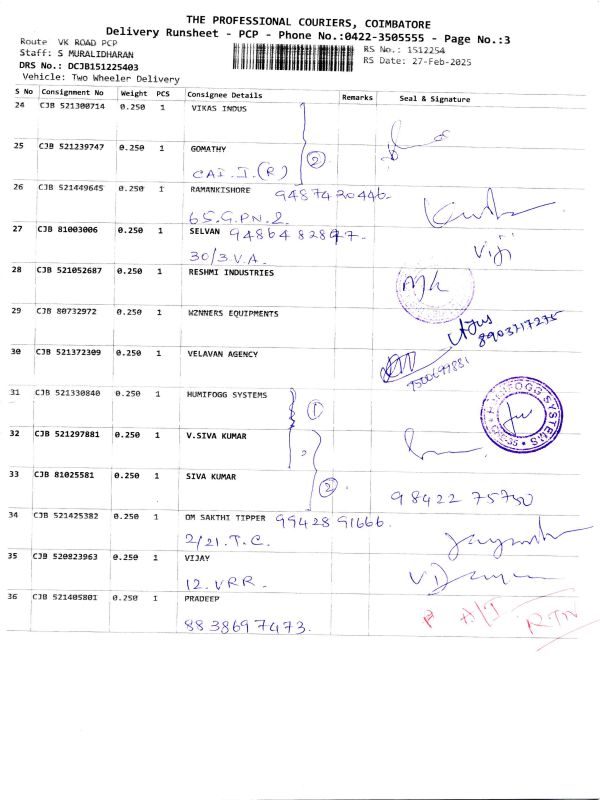 THE PROFESSIONAL COURIERS, COIMBATORE
Delivery Runsheet - PCP - Phone No.:0422-3505555 - Page No.:3
Route VK ROAD PCP
Staff: S MURALIDHARAN
DRS No.: DCJB151225403
Vehicle: Two Wheeler Delivery
RS No.: 1512254
RS Date: 27-Feb-2025
S No Consignment No Weight PCS Consignee Details Remarks Seal & Signature
24 CJB 521300714 0.250 1 VIKAS INDUS
25 CJB 521239747 0.250 1 GOMATHY
CAI.J.(R) 2
26 CJB 521449645 0.250 1 RAMANKISHORE 9487420446.
65.G.PN.2.
27 CJB 81003006 0.250 1 SELVAN 9486482847. Viji
30/3.V.A.
28 CJB 521052687 0.250 1 RESHMI INDUSTRIES
29 CJB 80732972 0.250 1 WZNNERS EQUIPMENTS
8903717275
30 CJB 521372309 0.250 1 VELAVAN AGENCY
31 CJB 521330840 0.250 1 HUMIFOGG SYSTEMS 1
HUMIFOGG SYSTEMS
32 CJB 521297881 0.250 1 V.SIVA KUMAR
33 CJB 81025581 0.250 1 SIVA KUMAR 2
98422 75750
34 CJB 521425382 0.250 1 OM SAKTHI TIPPER 9942891666.
2/21.T.C.
35 CJB 520823963 0.250 1 VIJAY
12.VRR.
36 CJB 521405801 0.250 1 PRADEEP
8838697473. RTN